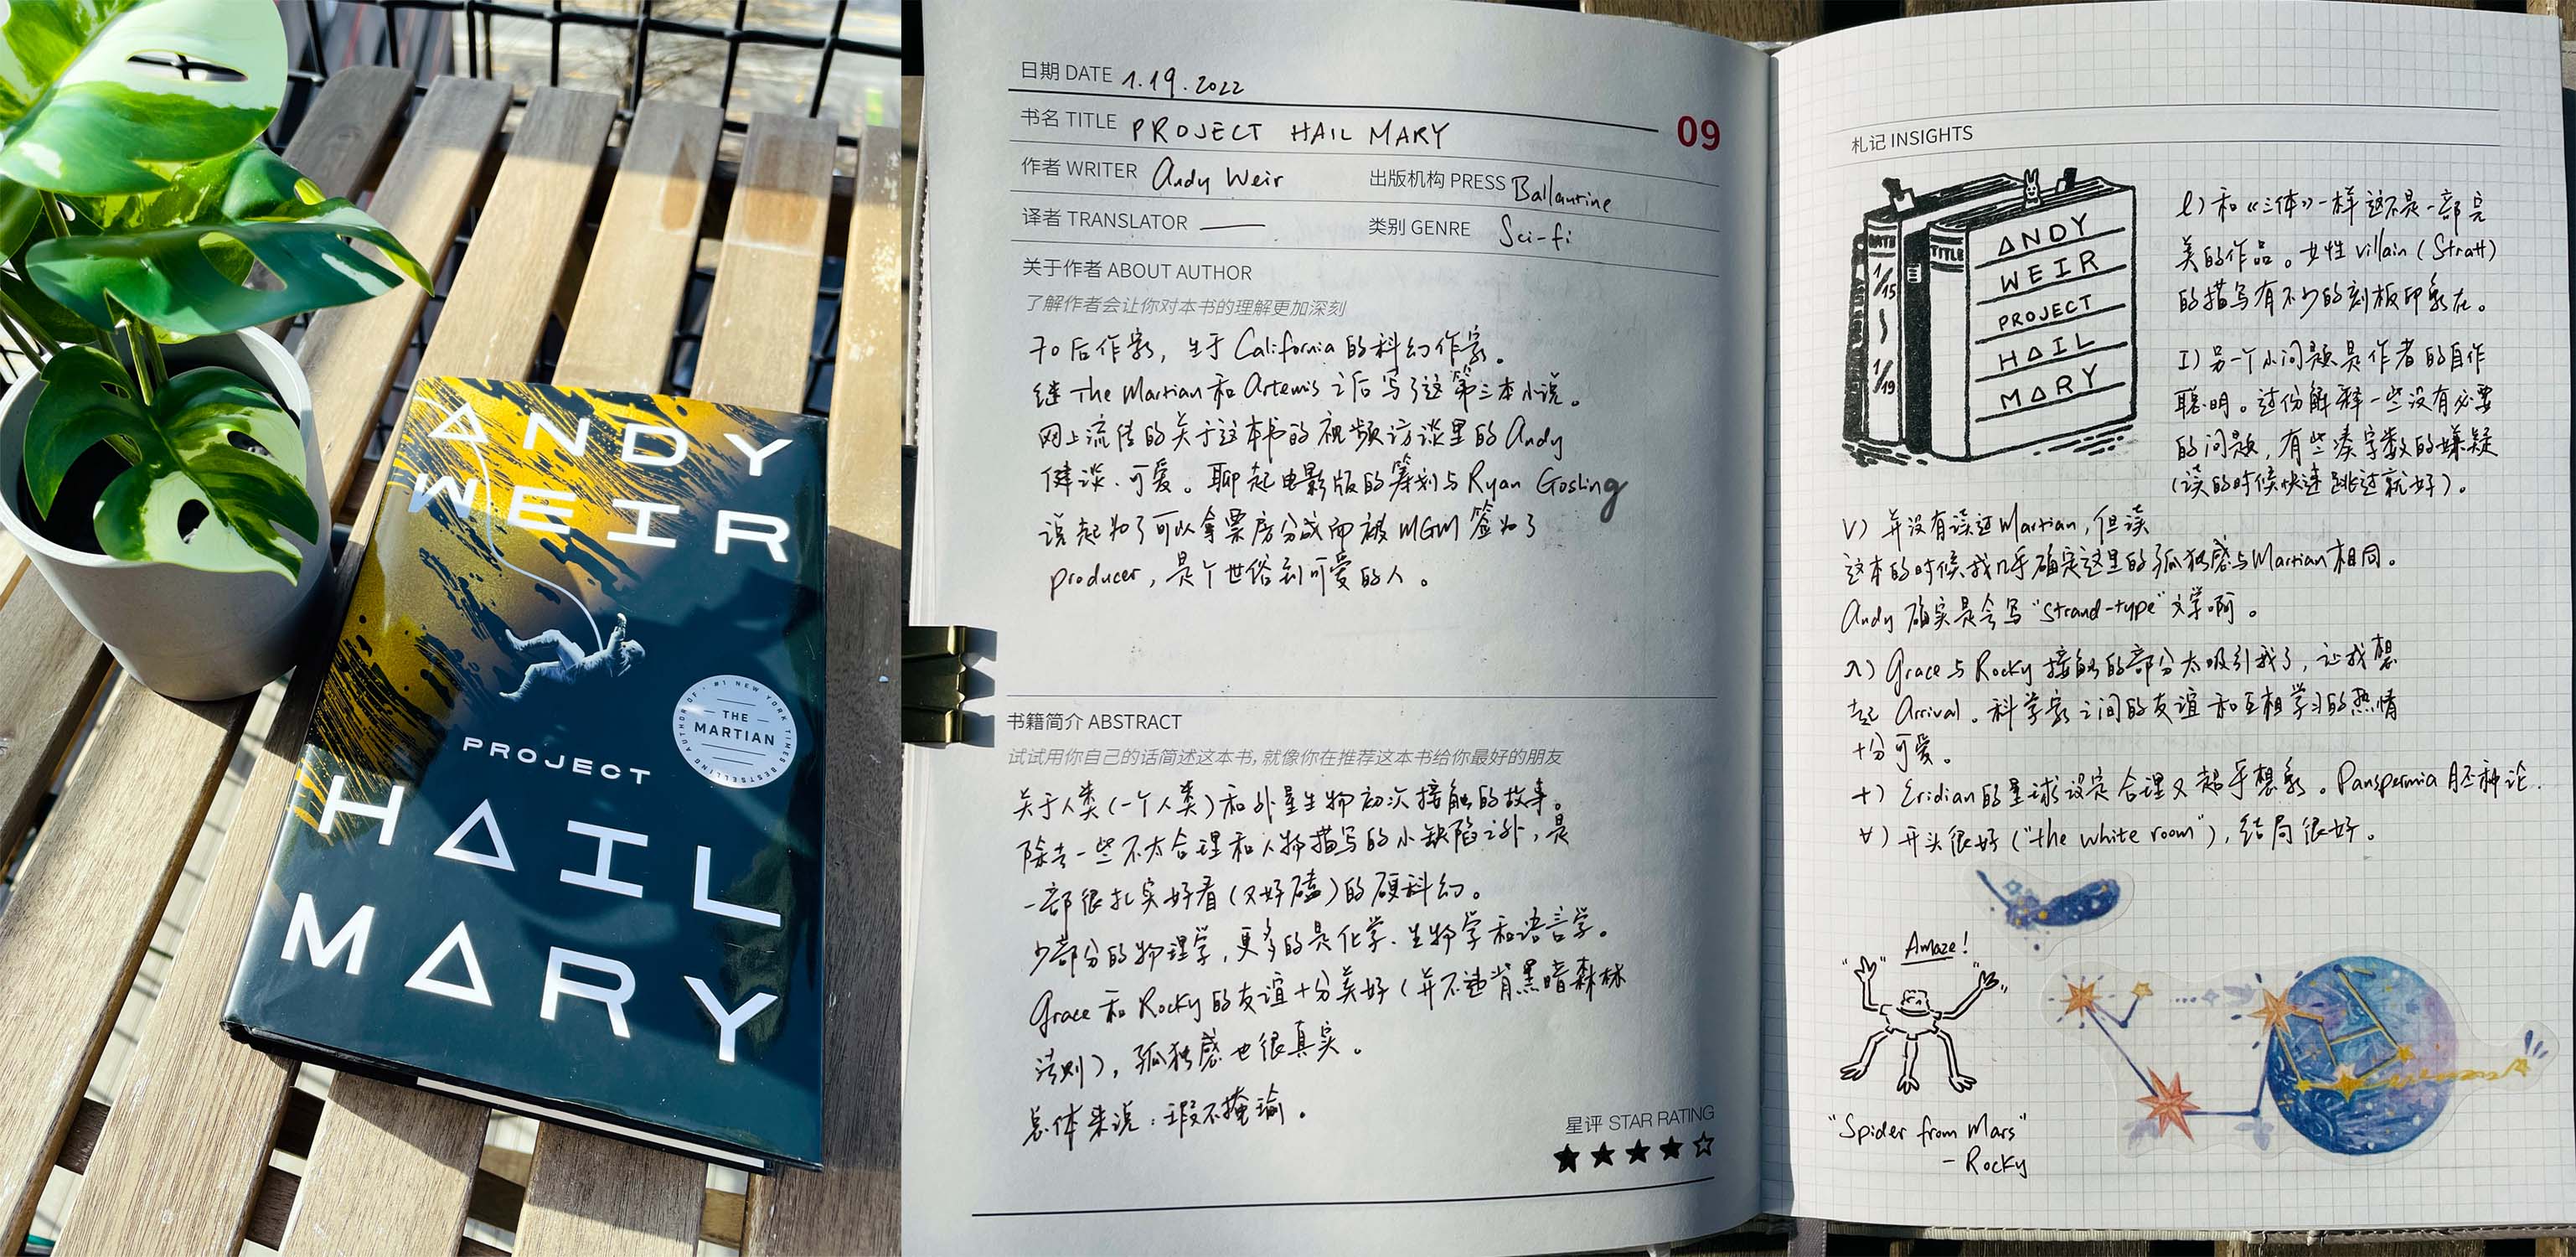 ANDY
WEIR
AUTHOR OF · #1 NEW YORK TIMES BESTSELLING
THE
MARTIAN
PROJECT
HAIL
MARY
日期 DATE 1.19.2022
书名 TITLE PROJECT HAIL MARY
09
作者 WRITER Andy Weir 出版机构 PRESS Ballantine
译者 TRANSLATOR —— 类别 GENRE Sci-fi
关于作者 ABOUT AUTHOR
了解作者会让你对本书的理解更加深刻
70后作家，生于California的科幻作家。
继The Martian和Artemis之后写了这第三本小说。
网上流传的关于这本书的视频访谈里的Andy
健谈、可爱。聊起电影版的筹划与Ryan Gosling
说起为了可以拿票房分成而被MGM签为了
producer，是个世俗到可爱的人。
书籍简介 ABSTRACT
试试用你自己的话简述这本书, 就像你在推荐这本书给你最好的朋友
关于人类(一个人类)和外星生物初次接触的故事。
除去一些不太合理和人物描写的小缺陷之外，是
一部很扎实好看(又好磕)的硬科幻。
少部分的物理学，更多的是化学、生物学和语言学。
Grace和Rocky的友谊十分美好(并不违背黑暗森林
法则)，孤独感也很真实。
总体来说：瑕不掩瑜。
星评 STAR RATING
★★★★☆
札记 INSIGHTS
DATE
1/15
1/19
TITLE
ANDY
WEIR
PROJECT
HAIL
MARY
ℓ) 和《三体》一样这不是一部完
美的作品。女性villain(Stratt)
的描写有不少的刻板印象在。
I) 另一个小问题是作者的自作
聪明。过份解释一些没有必要
的问题，有些凑字数的嫌疑
(读的时候快速跳过就好)。
V) 并没有读过Martian，但读
这本的时候我几乎确定这里的孤独感与Martian相同。
Andy确实是会写"strand-type"文学啊。
λ) Grace与Rocky接触的部分太吸引我了，让我想
起Arrival。科学家之间的友谊和互相学习的热情
十分可爱。
+) Eridian的星球设定合理又超乎想象。Panspermia胚种论.
∀) 开头很好("the white room")，结局很好。
Amaze!
"Spider from Mars"
- Rocky